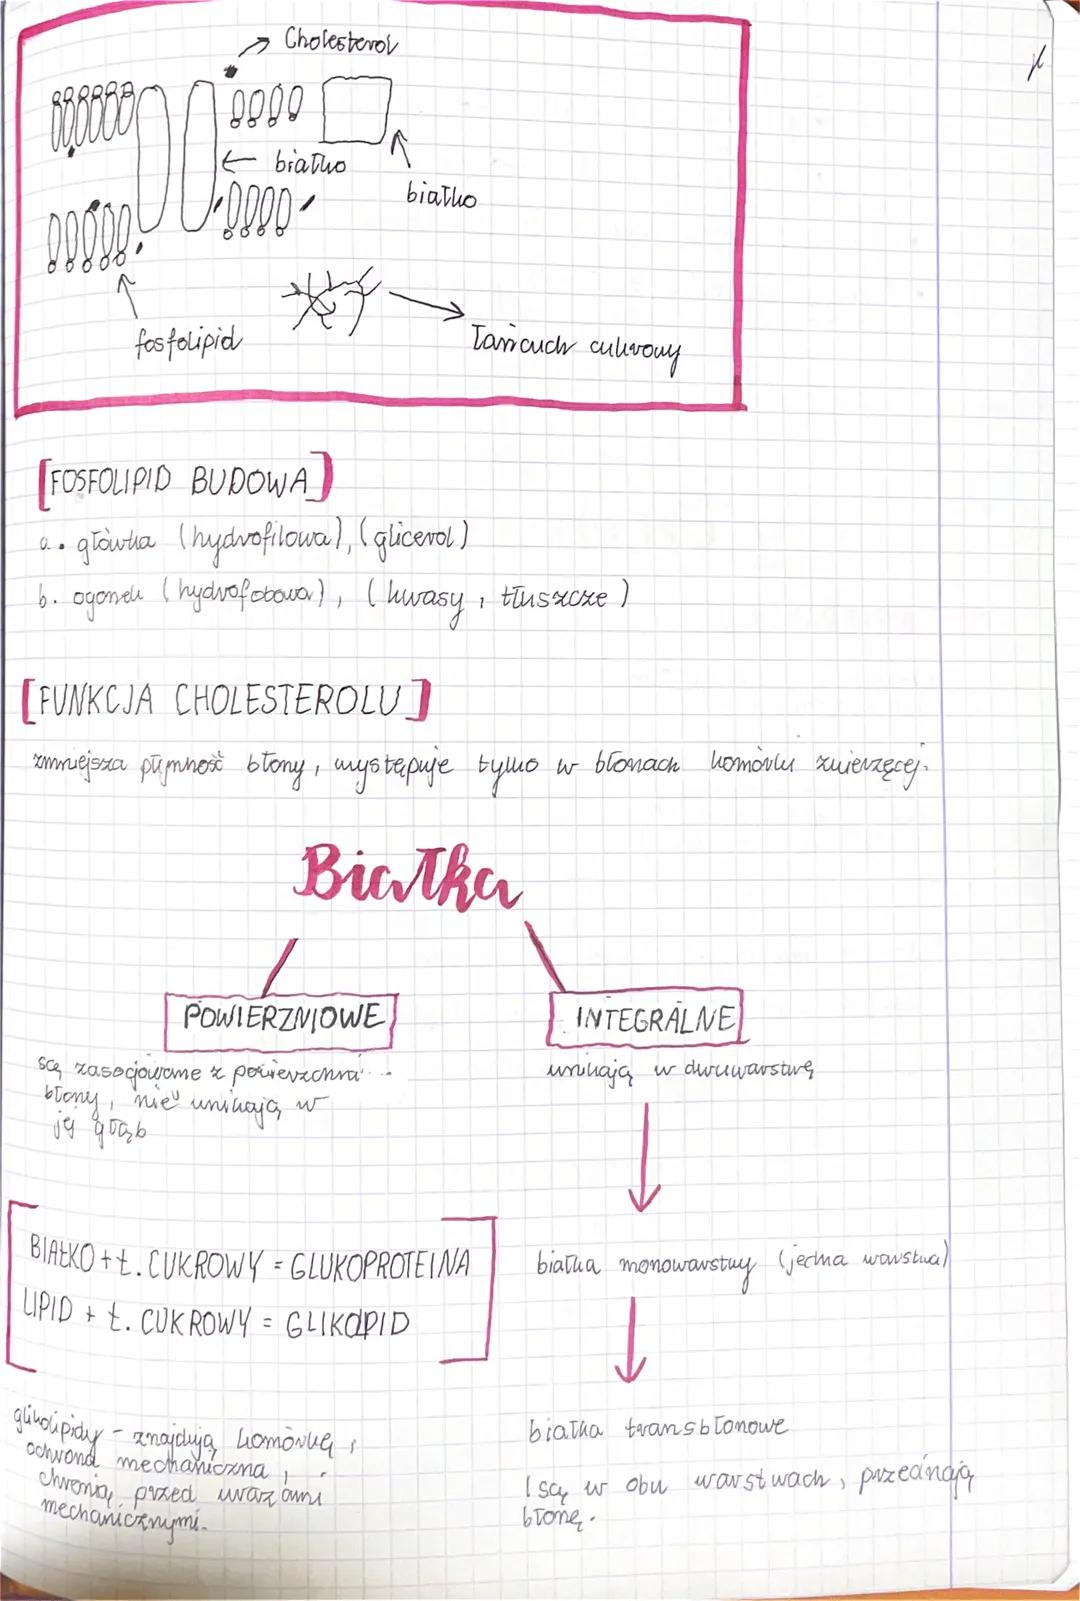 Cholesterol
białko
białko
fosfolipid
Łańcuch cukrowy
[FOSFOLIPID BUDOWA]
a. główka (hydrofilowa), (glicerol)
b. ogonek (hydrofobowa), (kwasy, tłuszcze)
[FUNKCJA CHOLESTEROLU]
zmniejsza płynność błony, występuje tylko w błonach komórki zwierzęcej.
Białka
POWIERZNIOWE
INTEGRALNE
są zasocjowane z powierzchnią
błony, nie wnikają w
jej głąb
wnikają w dwuwarstwę
BIAŁKO + Ł. CUKROWY = GLUKOPROTEINA
LIPID + Ł. CUKROWY = GLIKOLIPID
białka monowarstwy (jedna warstwa)
glikolipidy - znajdują komórkę,
ochrona mechaniczna,
chronią przed urazami
mechanicznymi.
białka transbłonowe
(są w obu warstwach, przecinają
błonę.